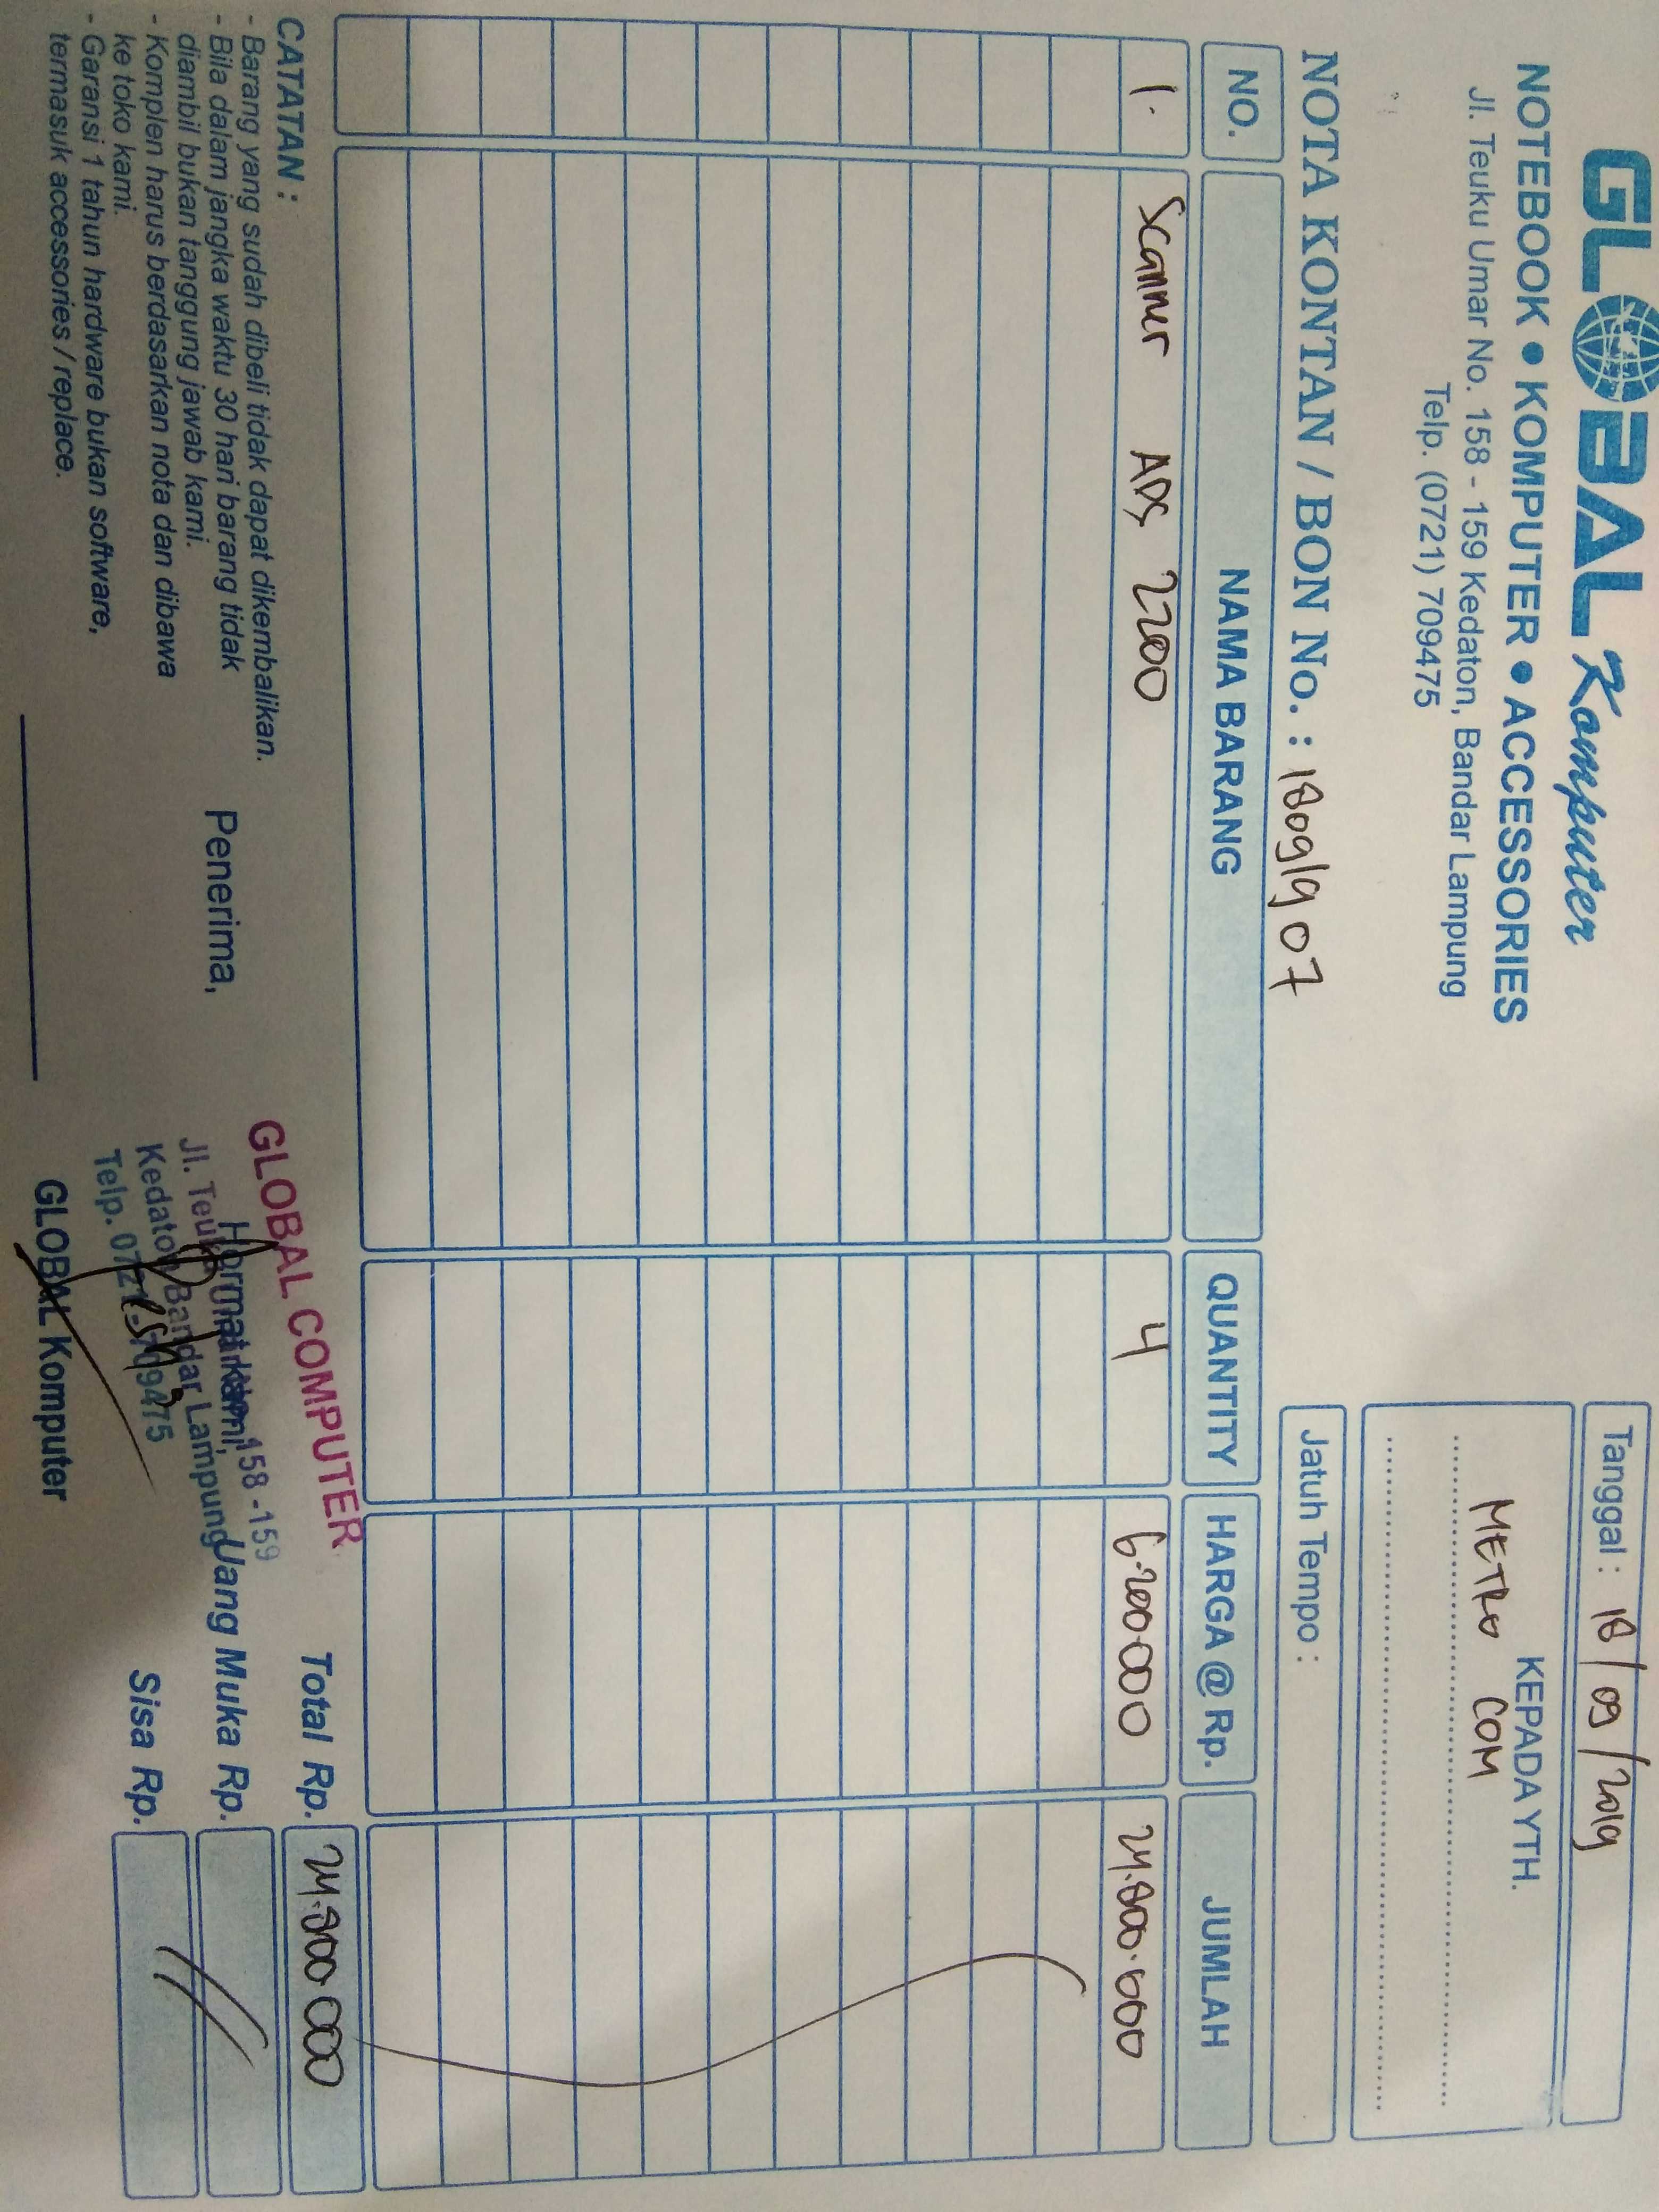 GLOBAL Komputer
NOTEBOOK ● KOMPUTER ● ACCESSORIES
Jl. Teuku Umar No. 158 - 159 Kedaton, Bandar Lampung
Telp. (0721) 709475
Tanggal : 18/09/2019
KEPADA YTH.
METRO COM
NOTA KONTAN / BON No. : 18091907
Jatuh Tempo :
NO. NAMA BARANG QUANTITY HARGA @ Rp. JUMLAH
1. Scanner ADS 2200 4 6.200.000 24.800.000
CATATAN :
- Barang yang sudah dibeli tidak dapat dikembalikan.
- Bila dalam jangka waktu 30 hari barang tidak
diambil bukan tanggung jawab kami.
- Komplen harus berdasarkan nota dan dibawa
ke toko kami.
- Garansi 1 tahun hardware bukan software,
termasuk accessories / replace.
Penerima,
Hormat kami,
GLOBAL COMPUTER
Jl. Teuku 158 - 159
Kedaton Bandar Lampung
Telp. 0721-709475
GLOBAL Komputer
Total Rp. 24.800.000
Uang Muka Rp.
Sisa Rp.